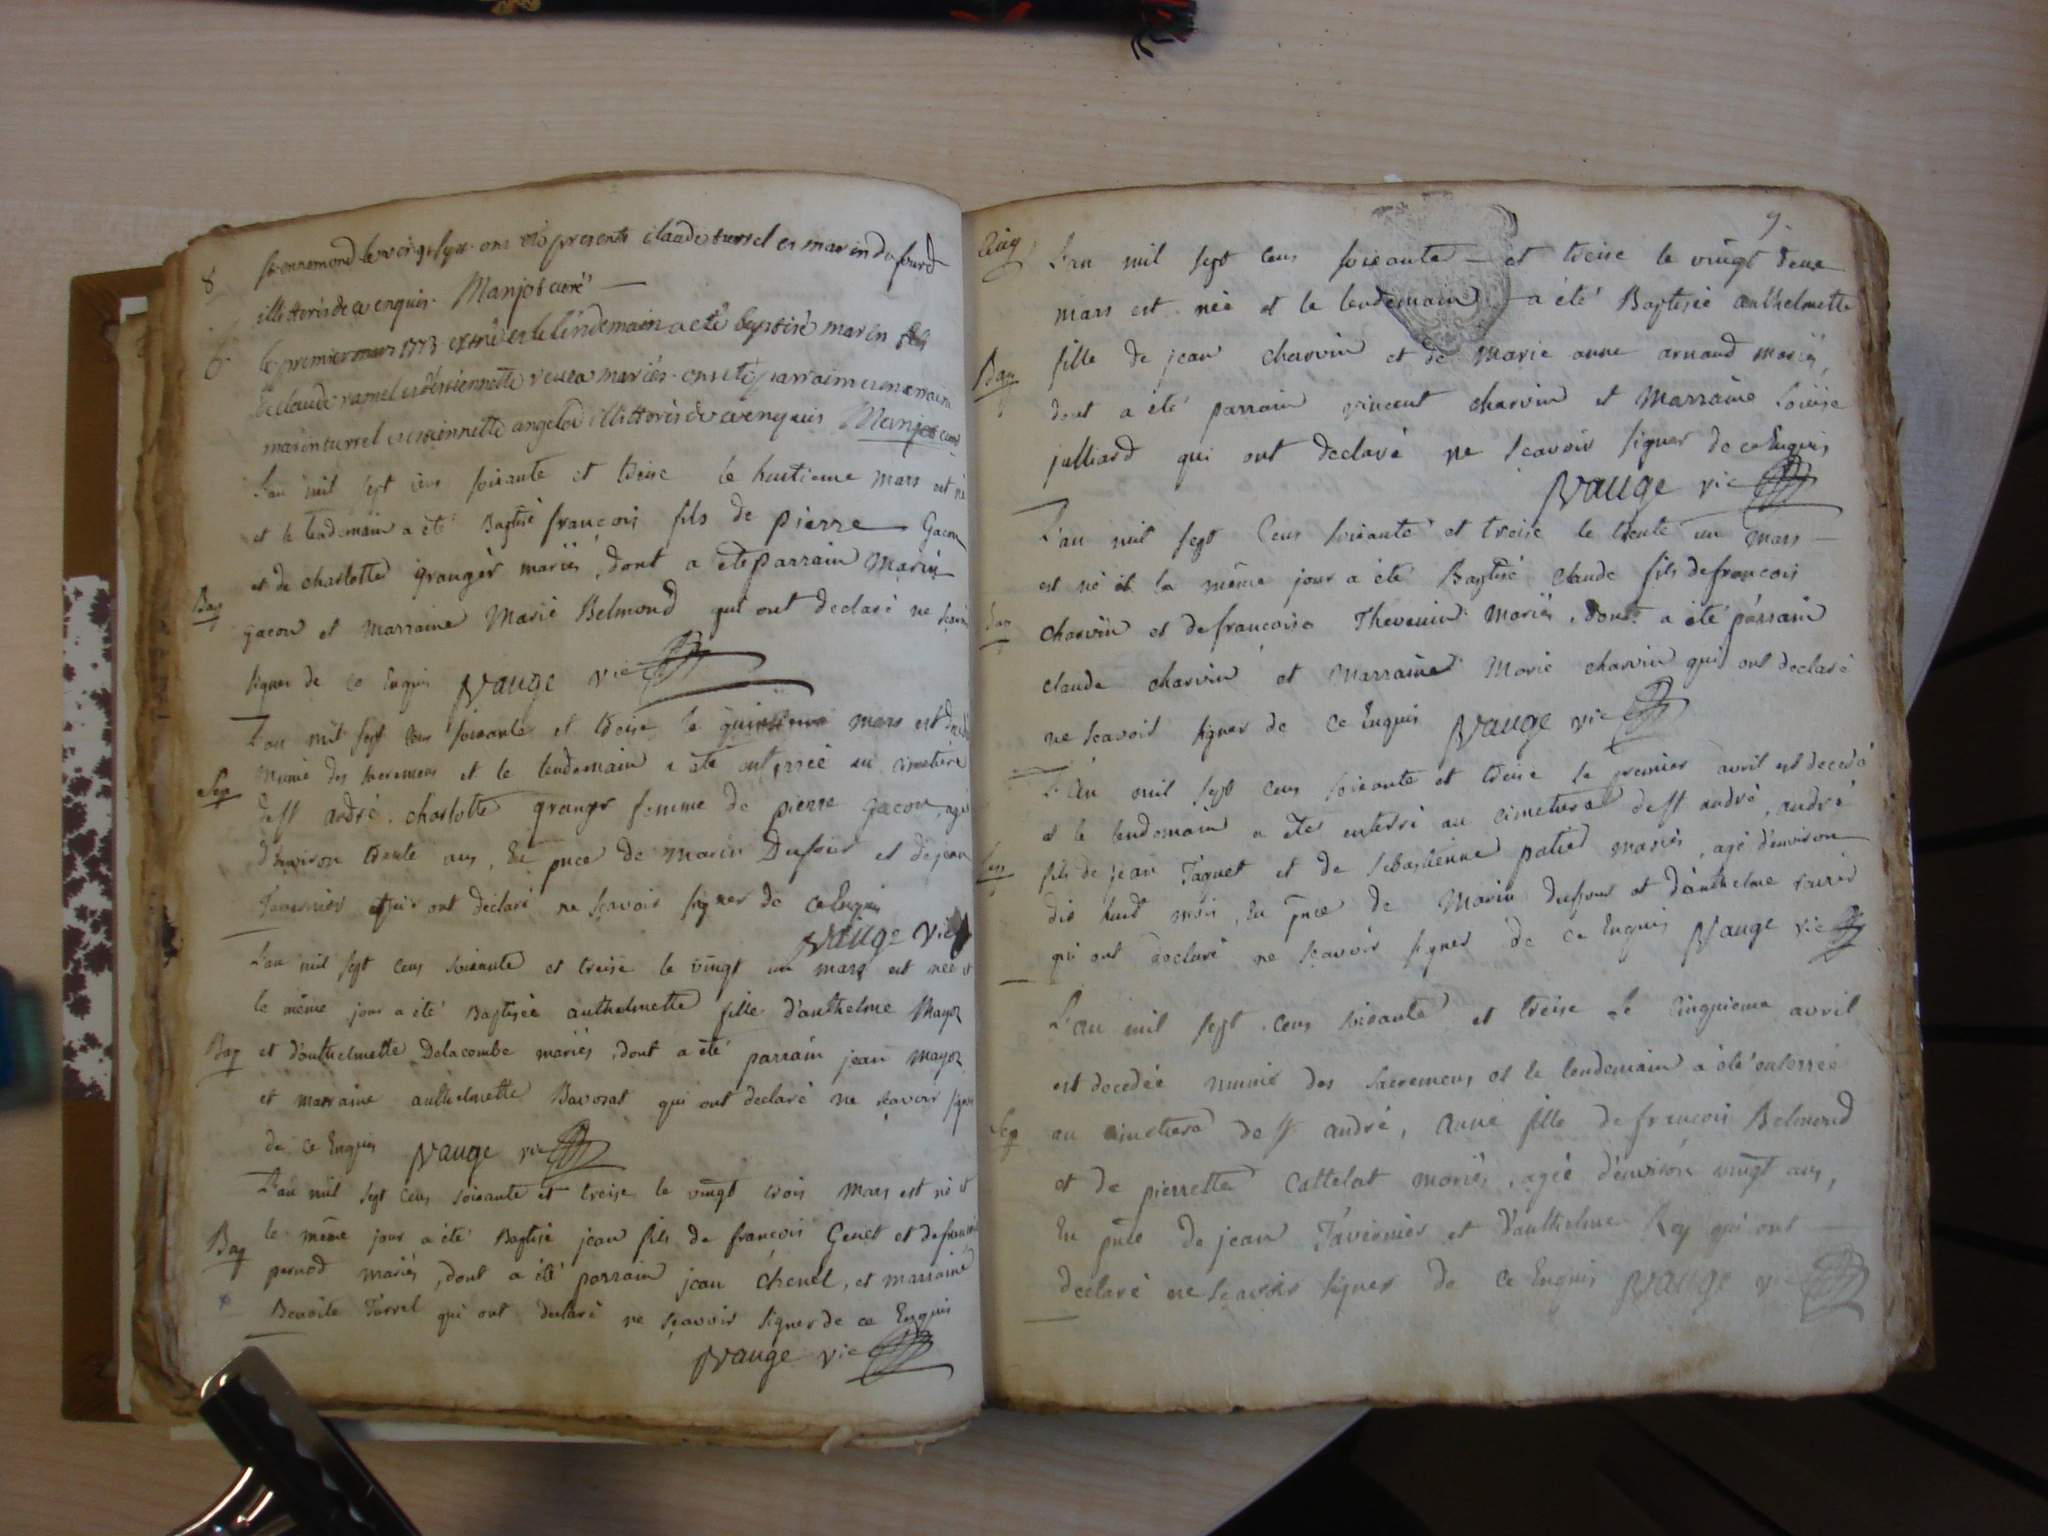 8
ont été presents claude turrel et marin dufour
illitterés de ce enquis. Manjot curé
B.
le premier mars 1773 est né et le lendemain a été baptisé marin fils
de claude ramel et d'etiennette mariés. ont été parrain et marraine
marin turrel et etiennette angelot illitterés de ce enquis Manjot curé
L'an mil sept cens soixante et treise le huitieme mars est né
et le lendemain a été Baptisé françois fils de pierre Gacon
et de charlotte granger mariés, dont a été parrain Marin
Bap
gacon et marraine Marie Belmond qui ont declaré ne sçavoir
signer de ce Enquis Vauge vic
L'an mil sept cens soixante et treise le quinsieme mars est decedée
munie des sacremens et le lendemain a été enterrée au cimetiere
Sep
de st andré. charlotte granger femme de pierre gacon, agée
d'environ trente ans, En pnce de marin Dufour et de jean
Tavernier qui ont declaré ne sçavoir signer de ce Enquis
Vauge vic
L'an mil sept cens soixante et treise le vingt un mars est née et
le même jour a été Baptisée anthelmette fille d'anthelme Mayoz
Bap
et d'anthelmette Delacombe mariés, dont a été parrain jean mayoz
et marraine anthelmette Bavozat qui ont declaré ne sçavoir signer
de ce Enquis Vauge vic
L'an mil sept cens soixante et treise le vingt trois mars est né et
Bap
le même jour a été Baptisé jean fils de françois Genet et de françoise
pernod mariés, dont a été parrain jean chenel, et marraine
Benoite Turrel qui ont declaré ne sçavoir signer de ce Enquis
Vauge vic
9.
L'an mil sept cens soixante et treise le vingt deux
mars est née et le lendemain a été Baptisée anthelmette
Bap
fille de jean charvin et de Marie anne arnaud mariés,
dont a été parrain vincent charvin et Marraine Loüise
julliard qui ont declaré ne sçavoir signer de ce Enquis
Vauge vic
L'an mil sept cens soixante et treise le trente un mars
est né et le même jour a été Baptisé claude fils de françois
Bap
charvin et de françoise Thevenin mariés, dont a été parrain
claude charvin et marraine Marie charvin qui ont declaré
ne sçavoir signer de ce Enquis Vauge vic
L'an mil sept cens soixante et treise le premier avril est decedé
et le lendemain a été enterré au cimetiere de st andré, andré
Sep
fils de jean Taquet et de sebastienne patiet mariés, agé d'environ
dix huit mois, En pnce de Marin dufour et d'anthelme
qui ont declaré ne sçavoir signer de ce Enquis Vauge vic
L'an mil sept cens soixante et treise le cinquieme avril
est decedée munie des sacremens et le lendemain a été enterrée
Sep
au cimetiere de st andré, anne fille de françois Belmond
et de pierrette Cattelat mariés, agée d'environ vingt ans,
En pnce de jean Tavernier et d'anthelme Rey qui ont
declaré ne sçavoir signer de ce Enquis Vauge vic